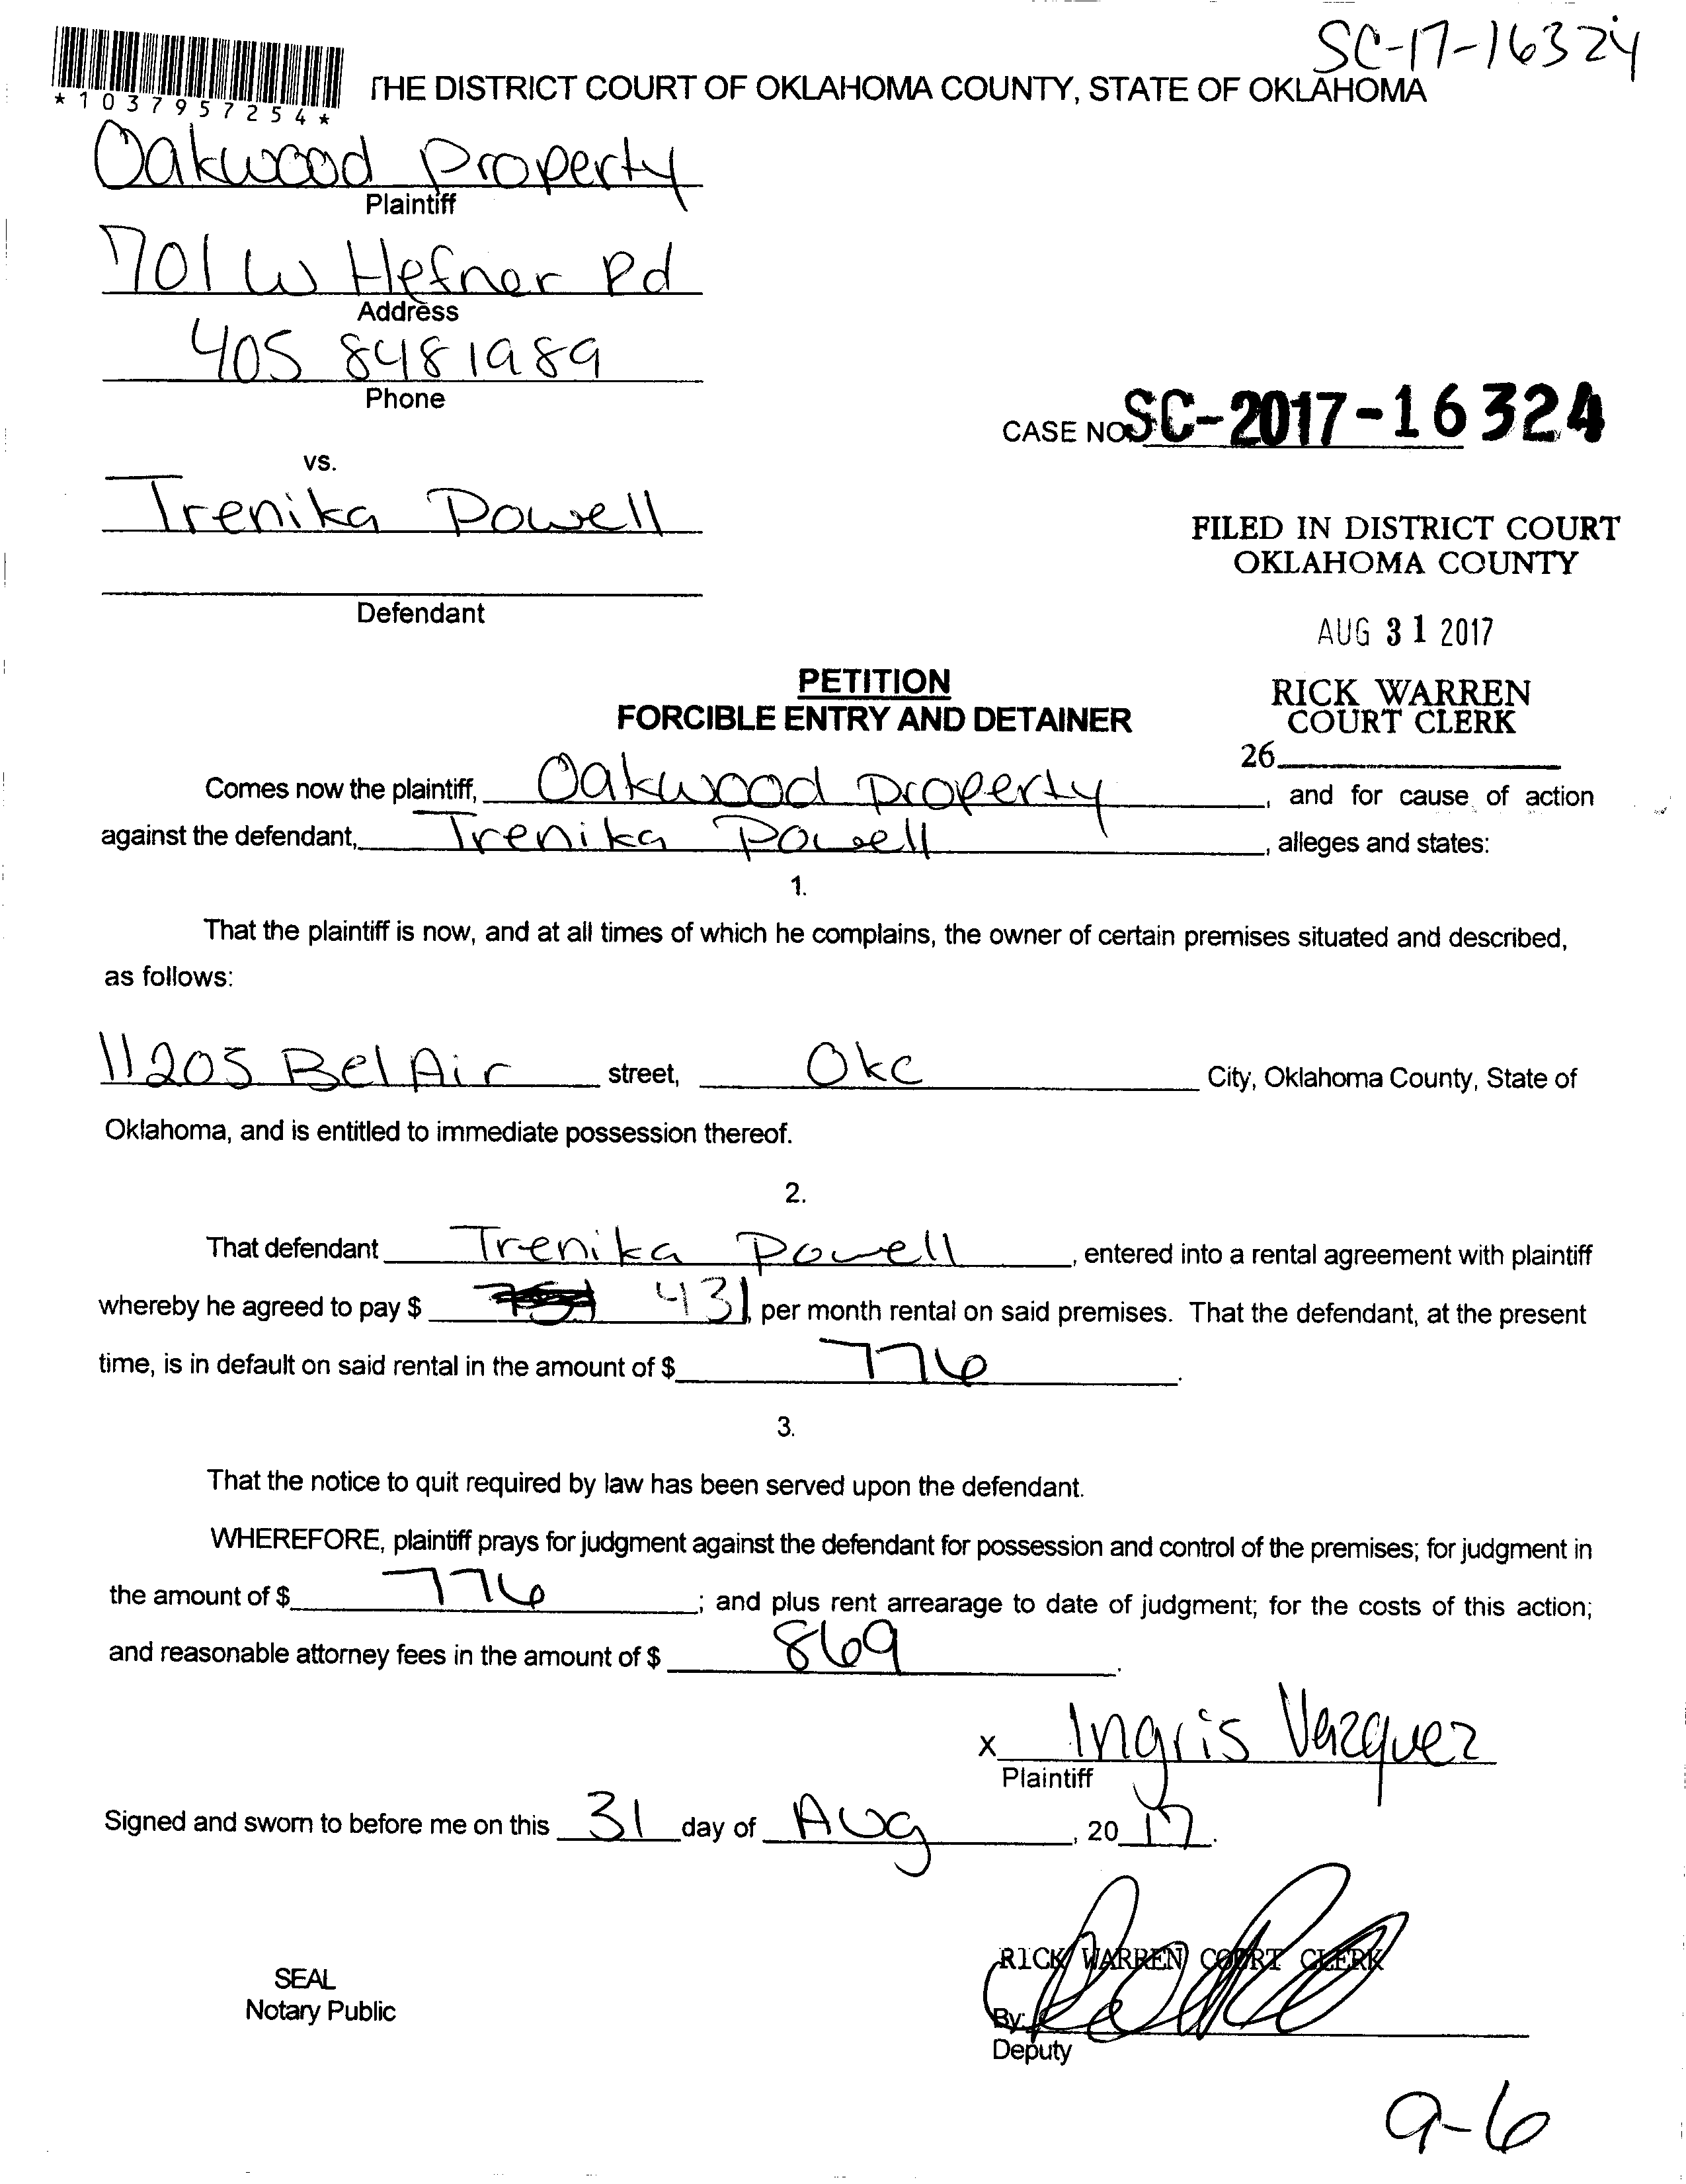 SC-17-16324
*1037957254*
THE DISTRICT COURT OF OKLAHOMA COUNTY, STATE OF OKLAHOMA
Oakwood Property
Plaintiff
701 W Hefner Rd
Address
405 848 1989
Phone
CASE NO SC-2017-16324
vs.
Trenika Powell
Defendant
FILED IN DISTRICT COURT
OKLAHOMA COUNTY
AUG 31 2017
RICK WARREN
COURT CLERK
26
PETITION
FORCIBLE ENTRY AND DETAINER
Comes now the plaintiff, Oakwood Property, and for cause of action
against the defendant, Trenika Powell, alleges and states:
1.
That the plaintiff is now, and at all times of which he complains, the owner of certain premises situated and described,
as follows:
11205 Bel Air street, Okc City, Oklahoma County, State of
Oklahoma, and is entitled to immediate possession thereof.
2.
That defendant Trenika Powell, entered into a rental agreement with plaintiff
whereby he agreed to pay $ 431, per month rental on said premises. That the defendant, at the present
time, is in default on said rental in the amount of $ 776.
3.
That the notice to quit required by law has been served upon the defendant.
WHEREFORE, plaintiff prays for judgment against the defendant for possession and control of the premises; for judgment in
the amount of $ 776; and plus rent arrearage to date of judgment; for the costs of this action;
and reasonable attorney fees in the amount of $ 869.
x Ingris Vazquez
Plaintiff
Signed and sworn to before me on this 31 day of Aug, 2017.
RICK WARREN COURT CLERK
SEAL
Notary Public
By:
Deputy
9-6